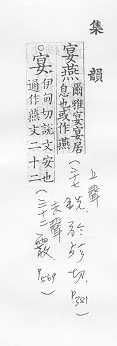 集韻
宴燕 爾雅宴宴居
息也或作燕
上聲
(二十七銑,於殄切,P.381)
○宴 伊甸切說文安也
通作燕文二十二
去聲
(三十二霰 P.569)